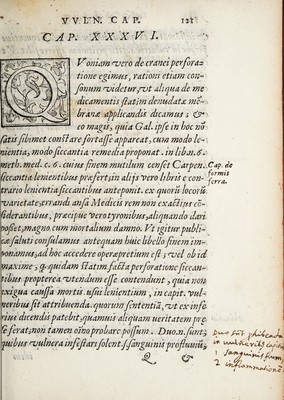 VVLN. CAP. 121
CAP. XXXVI.
QVoniam vero de cranei perfora
tione egimus, rationi etiam con-
sonum videtur, vt aliqua de me
dicamentis statim denudatæ mē
branæ applicandis dicamus: &
eo magis, quia Gal. ipse in hoc nō
satis sibimet constare fortasse appareat, cum modo le-
nientia, modo siccantia remedia proponat. in lib. n. 6.
meth. med. c. 6. cuius finem mutilum censet Carpen.
siccantia lenientibus præfert, in alijs vero libris e con-
trario lenientia siccantibus anteponit. ex quorū locorū
varietate, errandi ansa Medicis rem non exactius cō
siderantibus, præcipue vero tyronibus, aliquando dari
posset, magno cum mortalium damno. Vt igitur publi-
cæ saluti consulamus antequam huic libello finem im-
ponamus, ad hoc accedere operæpretium est; vel ob id
maxime, q quidam statim facta perforatione siccan-
tibus propterea vtendum esse contendunt, quia non
exigua caussa mortis vsui lenientium, in capit. vul-
neribus sit attribuenda. quorum sententiā, vt ex infe
rius dicendis patebit, quamuis aliquam veritatem præ
se ferat; non tamen oīno probare possum. Duo. n. sunt;
quibus vulnera infestari solent. s. sanguinis profluuiū;
Q
Cap. de
formis
serra.
in
1 sanguinis fluxum,
2 inflammationē